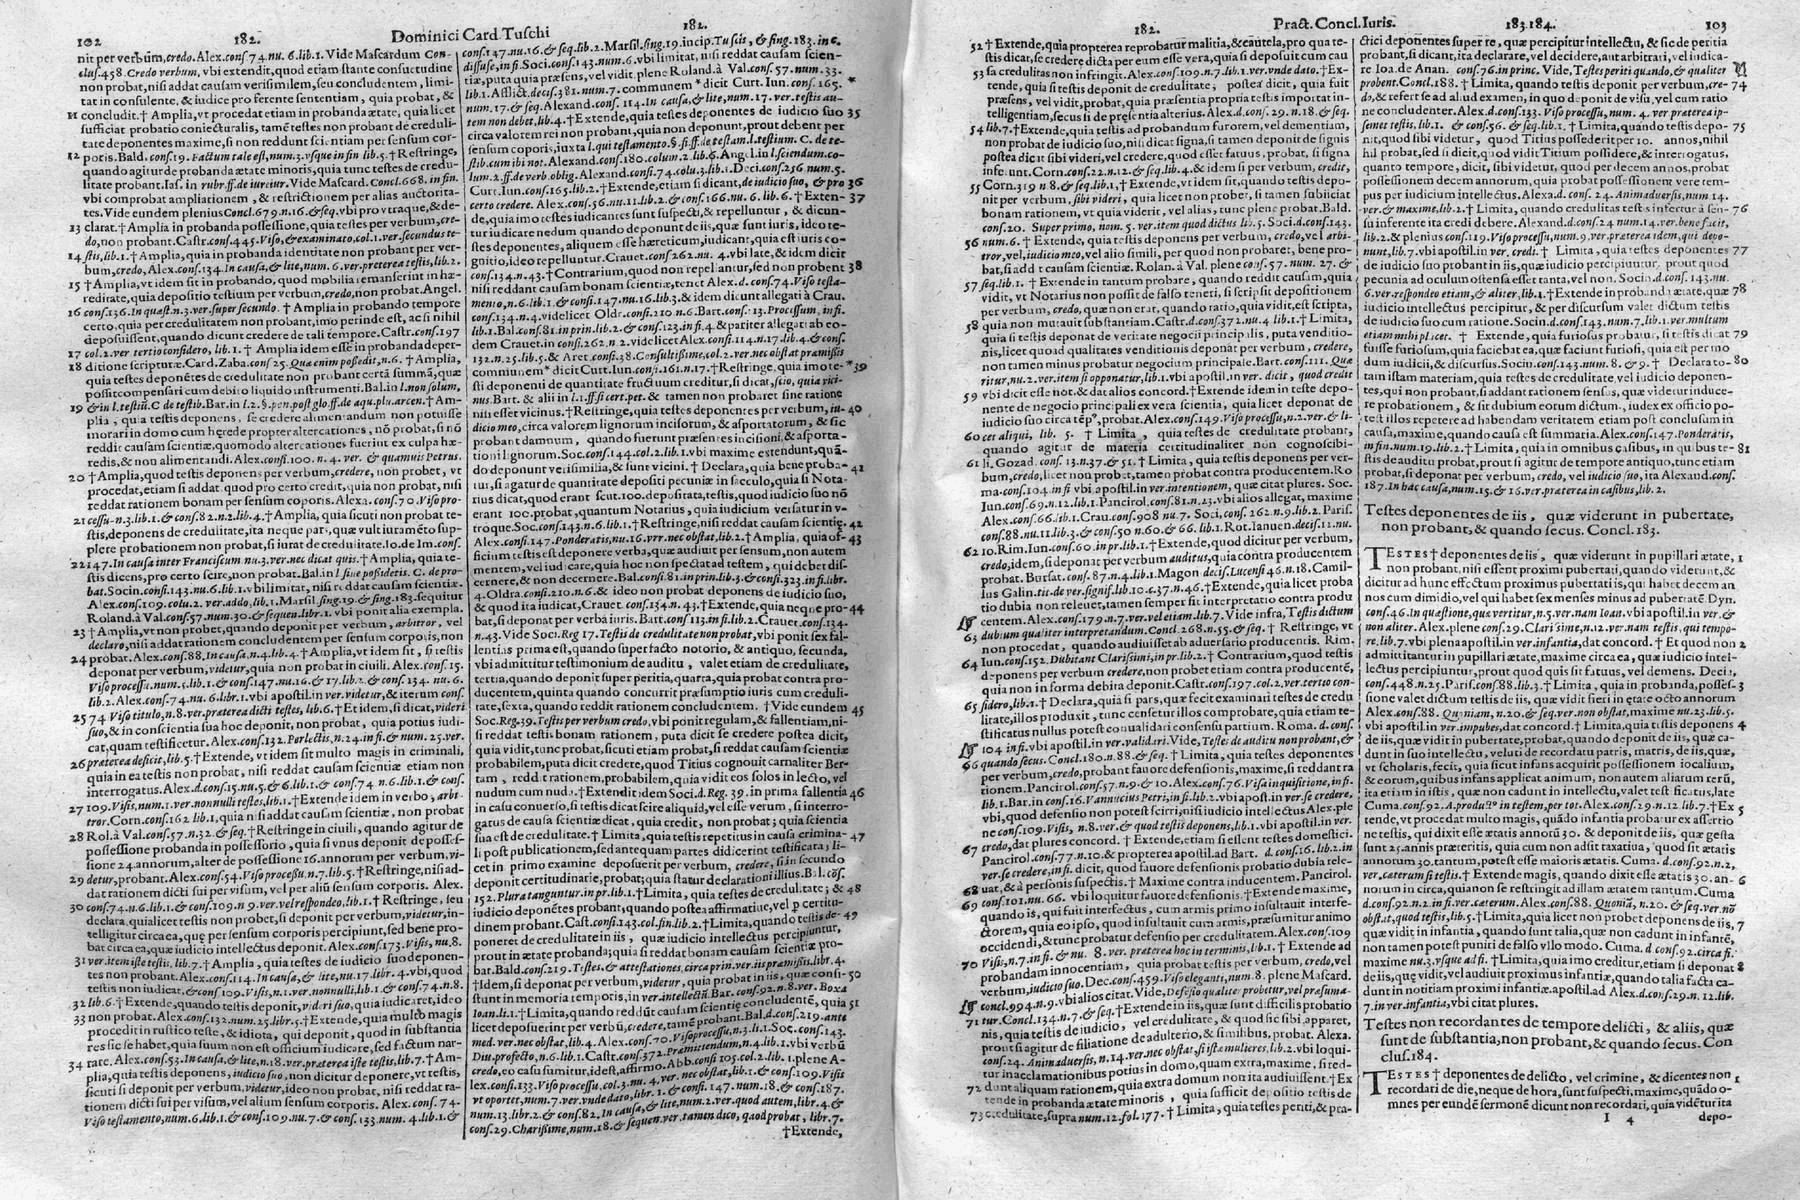 102 182. Dominici Card. Tuschi 182.
nit per verbum, credo. Alex. conf. 74. nu. 6. lib. 1. Vide Mascardum Con-
clus. 458. Credo verbum, vbi extendit, quod etiam stante consuetudine
non probat, nisi addat causam verisimilem, seu concludentem, limi-
tat in consulente, & iudice pro ferente sententiam, quia probat, &
11 concludit. † Amplia, vt procedat etiam in probanda ætate, quia licet
sufficiat probatio coniecturalis, tamē testes non probant de creduli-
tate deponentes maxime, si non reddunt scientiam per sensum cor-
12 poris. Bald. cons. 19. Factum tale est, num. 3. vsque in fin. lib. 5. † Restringe,
quando agitur de probanda ætate minoris, quia tunc testes de credu-
litate probant. Ias. in rubr. ff. de iureiur. Vide Mascard. Concl. 668. in fin.
vbi comprobat ampliationem, & restrictionem per alias auctorita-
tes. Vide eundem plenius Concl. 679. n. 16. & seq. vbi pro vtraque, & de-
13 clarat. † Amplia in probanda possessione, quia testes per verbum, cre-
do, non probant. Castr. cons. 445. Viso, & examinato, col. 1. ver. secundus te-
14 stis, lib. 1. † Amplia, quia in probanda identitate non probant per ver-
bum, credo, Alex. cons. 134. In causa, & lite, num. 6. ver. preterea testis, lib. 2.
15 † Amplia, vt idem sit in probando, quod mobilia remanserint in hæ-
reditate, quia depositio testium per verbum, credo, non probat. Angel.
16 cons. 136. In quæst. n. 3. ver. super secundo. † Amplia in probando tempore
certo, quia per credulitatem non probant, imo perinde est, ac si nihil
deposuissent, quando dicunt credere de tali tempore. Castr. cons. 197
17 col. 2. ver tertio considero, lib. 1. † Amplia idem esse in probanda deper-
18 ditione scripturæ. Card. Zaba. cons. 25. Quæ enim possedit, n. 6. † Amplia,
quia testes deponētes de credulitate non probant certā summā, quæ
possit compensari cum debito liquido instrumenti. Bal. in l. non solum,
19 & in l. testiū. C. de testib. Bar. in l. 2. §. pen. post glo. ff. de aqu. plu. arcen. † Am-
plia, quia testes deponens, se credere alimentandum non potuisse
morari in domo cum hęrede propter altercationes, nō probat, si nō
reddat causam scientiæ, quomodo altercationes fuerint ex culpa hæ-
redis, & non alimentandi. Alex. cons. 100. n. 4. ver. & quamuis Petrus.
20 † Amplia, quod testis deponens per verbum, credere, non probet, vt
procedat, etiam si addat quod pro certo credit, quia non probat, nisi
rationem bonam per sensum corporis. Alexa. cons. 70. Viso pro-
21 cessu. n. 3. lib. 1. & cons. 82. n. 2. lib. 4. † Amplia, quia sicuti non probat te-
stis, deponens de credulitate, ita neque pars, quæ vult iuramēto sup-
plere probationem non probat, si iurat de credulitate. Io. de Im. cons.
22 147. In causa inter Franciscum nu. 3. ver. nec dicat quis. † Amplia, quia te-
stis dicens, pro certo scire, non probat. Bal. in l. siue possidetis. C. de pro-
bat. Socin. cons. 143. nu. 6. lib. 1. vbi limitat, nisi reddat causam scientiæ.
Alex. cons. 109. colu. 2. ver. addo, lib. 1. Marsil. sing. 19. & sing. 183. sequitur
Roland. à Val. cons. 57. num. 30. & sequen. libr. 1. vbi ponit alia exempla.
23 † Amplia, vt non probet, quando deponit per verbum, arbitror, vel
declaro, nisi addat rationem concludentem per sensum corporis, non
24 probat. Alex. cons. 88. In causa, n. 4. lib. 4. † Amplia, vt idem sit, si testis
deponat per verbum, videtur, quia non probat in ciuili. Alex. cons. 15.
Viso processu, num. 5. lib. 1. & cons. 147. nu. 16. & 17. lib. 2. & cons. 134. nu. 6.
lib. 2. Alex. cons. 74. nu. 6. libr. 1. vbi apostil. in ver. videtur, & iterum cons.
25 74 Viso titulo, n. 8. ver. præterea dicti testes, lib. 6. † Et idem, si dicat, videri
suo, & in conscientia sua hoc deponit, non probat, quia potius iudi-
cat, quam testificetur. Alex. cons. 132. Perlectis, n. 24. in fi. & num. 25. ver.
26 præterea deficit, lib. 5. † Extende, vt idem sit multo magis in criminali,
quia in ea testis non probat, nisi reddat causam scientiæ etiam non
interrogatus. Alex. d. cons. 15. nu. 5. & 6. lib. 1. & cons. 74 n. 6. lib. 1. & cons.
27 109. Visis, num. 1. ver. non nulli testes, lib. 1. † Extende idem in verbo, arbi-
tror. Corn. cons. 162 lib. 1, quia nisi addat causam scientiæ, non probat
28 Rol. à Val. cons. 57. n. 32. & seq. † Restringe in ciuili, quando agitur de
possessione probanda in possessorio, quia si vnus deponit de posses-
sione 24. annorum, alter de possessione 16. annorum per verbum, vi-
29 detur, probant. Alex. cons. 54. Viso processu, n. 7. lib. 5. † Restringe, nisi ad-
dat rationem dicti sui per visum, vel per aliū sensum corporis. Alex.
30 cons. 74. n. 6. lib. 1. & cons. 109. n. 9. ver. vel respondeo, lib. 1. † Restringe, seu
declara, quia licet testis non probet, si deponit per verbum, videtur, in-
telligitur circa ea, quę per sensum corporis percipiunt, sed bene pro-
bat circa ea, quæ iudicio intellectus deponit. Alex. cons. 173. Visis, nu. 8.
31 ver. item iste testis. lib. 7. † Amplia, quia testes de iudicio suo deponen-
tes non probant. Alex. cons. 114. In causa, & lite, nu. 17. libr. 4. vbi, quod
testis non iudicat. & cons. 109. Visis, n. 1. ver. nonnulli, lib. 1. & cons. 74. n. 8.
32 lib. 6. † Extende, quando testis deponit, videri suo, quia iudicaret, ideo
33 non probat. Alex. cons. 132. num. 25. libr. 5. † Extende, quia multo magis
procedit in rustico teste, & idiota, qui deponit, quod in substantia
res sic se habet, quia suum non est officium iudicare, sed factum nar-
34 rare. Alex. cons. 53. In causa, & lite, n. 18. ver. præterea iste testis, lib. 7. † Am-
plia, quia testes deponens, iudicio suo, non dicitur deponere, vt testis,
sicuti si deponit per verbum, videtur, ideo non probat, nisi reddat ra-
tionem dicti sui per visum, vel alium sensum corporis. Alex. cons. 74.
Viso testamento, num. 6. lib. 1. & cons. 109. nu. 7. & cons. 133. num. 4. lib. 1. &
cons. 147. nu. 16. & seq. lib. 2. Marsil. sing. 19. incip. Tuscis, & sing. 183. in c.
diffuse, in fi. Soci. cons. 143. num. 6. vbi limitat, nisi reddat causam scien-
tiæ, puta quia præsens, vel vidit plene Roland. à Val. cons. 57. num. 33.
lib. 1. Afflict. decis. 381. num. 7. communem * dicit Curt. Iun. cons. 165. *
num. 17. & seq. Alexand. cons. 114. In causa, & lite, num. 17. ver. testis au-
tem non debet, lib. 4. † Extende, quia testes deponentes de iudicio suo 35
circa valorem rei non probant, quia non deponunt, prout debent per
sensum corporis, iuxta l. qui testamento. §. fi. ff. de testam. l. testium. C. de te-
stib. cum ibi not. Alexand. cons. 180. colum. 2. lib. 6. Angel. in l. sciendum. co-
lum. 2. ff. de verb. oblig. Alexand. cons. 74. colu. 3. lib. 1. Deci. cons. 256. num. 5.
Curt. Iun. cons. 165. lib. 2. † Extende, etiam si dicant, de iudicio suo, & pro 36
certo credere. Alex. cons. 56. nu. 11. lib. 2. & cons. 166. nu. 6. lib. 6. † Exten- 37
de, quia imo testes iudicantes sunt suspecti, & repelluntur, & dicun-
tur iudicare nedum quando deponunt de iis, quæ sunt iuris, ideo te-
stes deponentes, aliquem esse hæreticum, iudicant, quia est iuris co-
gnitio, ideo repelluntur. Crauet. cons. 262. nu. 4. vbi late, & idem dicit
cons. 134. n. 43. † Contrarium, quod non repellantur, sed non probent 38
nisi reddant causam bonam scientiæ, tenet Alex. d. cons. 74. Viso testa-
mento, n. 6. lib. 1. & cons. 147. nu. 16. lib. 3. & idem dicunt allegati à Crau.
cons. 134. n. 4. videlicet Oldr. cons. 210. n. 6. Bart. cons. 13. Processum, in fi.
lib. 1. Bal. cons. 81. in prin. lib. 2. & cons. 123. in fi. 4. & pariter allegati ab eo-
dem Crauet. in cons. 262. n. 2. videlicet Alex. cons. 114. n. 17. lib. 4. & cons.
132. n. 25. lib. 5. & Aret. cons. 38. Consultissime, col. 2. ver. nec obstat præmissis
communem * dicit Curt. Iun. cons. 161. n. 17. † Restringe, quia imo te- * 39
sti deponenti de quantitate fructuum creditur, si dicat, scio, quia vici-
nus. Bart. & alii in l. 1. ff. si cert. pet. & tamen non probaret sine ratione
nisi esset vicinus. † Restringe, quia testes deponentes per verbum, iu- 40
dicio meo, circa valorem lignorum incisorum, & asportatorum, & sic
probant damnum, quando fuerunt præsentes incisioni, & asporta-
tioni lignorum. Soc. cons. 144. col. 2. lib. 1. vbi maxime extendunt, quā-
do deponunt verisimilia, & sunt vicini. † Declara, quia bene proba- 41
tur, si agatur de quantitate depositi pecuniæ in sacculo, quia si Nota-
rius dicat, quod erant scut. 100. deposita, testis, quod iudicio suo nō
erant 100. probat, quantum Notarius, quia iudicium versatur in v-
troque. Soc. cons. 143. n. 6. lib. 1. † Restringe, nisi reddat causam scientię. 42
Alex. cons. 147. Ponderatis, nu. 16. vrr. nec obstat, lib. 2. † Amplia, quia of- 43
ficium testis est deponere verba, quæ audiuit per sensum, non autem
mentem, vel iudicare, quia hoc non spectat ad testem, qui debet dis-
cernere, & non decernere. Bal. cons. 81. in prin. lib. 3. & cons. 323. in fi. libr.
4. Oldra. cons. 210. n. 6. & ideo non probat deponens de iudicio suo,
& quod ita iudicat, Crauet. cons. 134. n. 43. † Extende, quia neque pro- 44
bat, si deponat per verba iuris. Bart. cons. 113. in fi. lib. 2. Crauet. cons. 134.
n. 43. Vide Soci. Reg. 17. Testis de credulitate non probat, vbi ponit sex fal-
lentias prima est, quando super facto notorio, & antiquo, secunda,
vbi admittitur testimonium de auditu, valet etiam de credulitate,
tertia, quando deponit super peritia, quarta, quia probat contra pro-
ducentem, quinta quando concurrit præsumptio iuris cum creduli-
tate, sexta, quando reddit rationem concludentem. † Vide eundem 45
Soc. Reg. 39. Testis per verbum credo, vbi ponit regulam, & fallentiam, ni-
si reddat testis bonam rationem, puta dicit se credere postea dicit,
quia vidit, tunc probat, sicuti etiam probat, si reddat causam scientiæ
probabilem, puta dicit credere, quod Titius cognouit carnaliter Ber-
tam, reddit rationem, probabilem, quia vidit eos solos in lecto, vel
nudum cum nuda. † Extendit idem Soci. d. Reg. 39. in prima fallentia 46
in casu conuerso, si testis dicat scire aliquid, vel esse verum, si interro-
gatus de causa scientiæ dicat, quia credit, non probat; quia scientia
sua est de credulitate. † Limita, quia testis repetitus in causa crimina- 47
li post publicationem, sed antequam partes didicerint testificata; li-
cet in primo examine deposuerit per verbum, credere, si in secundo
deponit certitudinarie, probat; quia statur declarationi illius. Bal. cōs.
152. Plura tanguntur. in pr. lib. 1. † Limita, quia testes de credulitate; & 48
iudicio deponētes probant, quando postea affirmatiue, vel ꝑ certitu-
dinem probant. Cast. cons. 143. col. fin. lib. 2. † Limita, quando testis de- 49
poneret de credulitate in iis, quæ iudicio intellectus percipiuntur,
prout in ætate probanda; quia si reddat bonam causam scientiæ pro-
bat. Bald. cons. 219. Testes, & attestationes, circa prin. ver. iis præmissis, libr. 4.
† Idem, si deponat per verbum, videtur, quia probat in iis, quæ consi- 50
stunt in memoria temporis, in ver. intellectū. Bar. cons. 92. n. 8. ver. Boxa
Ioan. li. 1. † Limita, quando reddūt causam scientiæ concludentē, quia 51
licet deposuerint per verbū, credere, tamē probant. Bal. d. cons. 219. ante
med. ver. nec obstat, lib. 4. Alex. cons. 70. Viso processu, n. 3. li. 1. Soc. cons. 143.
Diu. profecto, n. 6. lib. 1. Castr. cons. 372. Præmittendum, n. 4. lib. 1. vbi verbū
credo, eo casu sumitur, id est, affirmo. Abb. cons. 105. col. 2. lib. 1. plene A-
lex. cons. 133. Viso processu, col. 3. nu. 4. ver. nec obstat, lib. 1. & cons. 109. Visis
vt oportet, num. 7. ver. vnde dato, libr. 1. & cons. 147. num. 18. & cons. 187.
num. 13. libr. 2. & cons. 82. In causa, & lite, num. 2. ver. quod autem, lib. 4. &
cons. 29. Charissime, num. 18. & sequen. ver. tamen dico, quod probat, libr. 7.
† Extende,
182. Pract. Concl. Iuris. 183. 184. 103
52 † Extende, quia propterea reprobatur malitia, & cautela, pro qua te-
stis dicat, se credere dicta per eum esse vera, quia si deposuit cum cau
53 sa credulitas non infringit. Alex. cons. 109. n. 7. lib. 1. ver. vnde dato. † Ex-
tende, quia si testis deponit de credulitate, postea dicit, quia fuit
præsens, vel vidit, probat, quia præsentia propria testis importat in-
telligentiam, secus si de præsentia alterius. Alex. d. cons. 29. n. 18. & seq.
54 lib. 7. † Extende, quia testis ad probandum furorem, vel dementiam,
non probant de iudicio suo, nisi dicat signa, si tamen deponit de signis
postea dicit sibi videri, vel credere, quod esset fatuus, probat, si signa
inferunt. Corn. cons. 22. n. 12. & seq. lib. 4. & idem si per verbum, credit,
55 Corn. 319 n. 8. & seq. lib. 1. † Extende, vt idem sit, quando testis depo-
nit per verbum, sibi videri, quia licet non probet, si tamen subiiciat
bonam rationem, vt quia viderit, vel alias, tunc plene probat. Bald.
cons. 20. Super primo, num. 5. ver. item quod dictus li. 5. Soci. d. cons. 143.
56 num. 6. † Extende, quia testis deponens per verbum, credo, vel arbi-
tror, vel, iudicio meo, vel alio simili, per quod non probaret; bene pro-
bat, si addat causam scientiæ. Rolan. à Val. plene cons. 57. num. 27. &
57 seq. lib. 1. † Extende in tantum probare, quando reddit causam, quia
vidit, vt Notarius non possit de falso teneri, si scripsit depositionem
per verbum, credo, quæ non erat, quando ratio, quia vidit, est scripta,
58 quia non mutauit substantiam. Castr. d. cons. 372. nu. 4 lib. 1. † Limita,
quia si testis deponat de veritate negocii principalis, puta venditio-
nis, licet quoad qualitates venditionis deponat per verbum, credere,
non tamen minus probatur negocium principale. Bart. cons. 111. Quæ
ritur, nu. 2. ver. item si opponatur, lib. 1. vbi apostil. in ver. dicit, quod credit
59 vbi dicit esse not. & dat alios concord. † Extende idem in teste depo-
nente de negocio principali ex vera scientia, quia licet deponat de
iudicio suo circa tēpꝰ, probat. Alex. cons. 149. Viso processu, n. 2. ver. & li-
60 cet aliqui, lib. 5. † Limita, quia testes de credulitate probant,
quando agitur de materia certitudinaliter non cognoscibi-
61 li, Gozad. cons. 13. n. 37. & 51. † Limita, quia testis deponens per ver-
bum, credo, licet non probet, tamen probat contra producentem. Ro
ma. cons. 104. in fi vbi apostil. in ver. intentionem, quæ citat plures. Soc.
Iun. cons. 69. n. 12. lib. 1. Pancirol. cons. 81. n. 23. vbi alios allegat, maxime
Alex. cons. 66. lib. 1. Crau. cons. 908 nu. 7. Soci. cons. 262 n. 9. lib. 2. Paris.
cons. 88. nu. 11. lib. 3. & cons. 50 n. 60. & 66. lib. 1. Rot. Ianuen. decis. 12. nu.
62 10. Rim. Iun. cons. 60. in pr. lib. 1. † Extende, quod dicitur per verbum,
credo, idem, si deponat per verbum auditus, quia contra producentem
probat. Bursat. cons. 87. n. 4. lib. 1. Magon. decis. Lucensi 46. n. 18. Camil-
lus Galin. tit. de ver. signif. lib. 10. c. 37. n. 46. † Extende, quia licet proba
tio dubia non releuet, tamen semper fit interpretatio contra produ
centem. Alex. cons. 179. n. 7. ver. vel etiam lib. 7. Vide infra, Testis dictum
63 dubium qualiter interpretandum. Concl. 268. n. 55. & seq. † Restringe, vt
non procedat, quando audiuisset ab aduersario producentis. Rim.
64 Iun. cons. 152. Dubitant Clarissimi, in pr. lib. 2. † Contrarium, quod testis
deponens per verbum credere, non probet etiam contra producentē,
quia non in forma debita deponit. Castr. cons. 197. col. 2. ver. tertio con-
65 sidero, lib. 1. † Declara, quia si pars, quæ fecit examinari testes de credu
litate, illos produxit, tunc censetur illos comprobare, quia etiam te-
stificatus nullus potest conualidari consensu partium. Roma. d. cons.
104 in fi. vbi apostil. in ver. validari. Vide, Testes de auditu non probant, &
66 quando secus. Concl. 180. n. 88. & seq. † Limita, quia testes deponentes
per verbum, credo, probant fauore defensionis, maxime, si reddant ra
tionem. Pancirol. cons. 57. n. 9. & 10. Alex. cons. 76. Visa inquisitione, in fi.
lib. 1. Bar. in cons. 16. Vannucius Petri, in fi. lib. 2. vbi apost. in ver. se credere,
vbi, quod defensio non potest sciri, nisi iudicio intellectus Alex. ple
ne cons. 109. Visis, n. 8. ver. & quod testis deponens, lib. 1. vbi apostil. in ver.
credo, dat plures concord. † Extende, etiam si essent testes domestici.
67 Pancirol. cons. 77. n. 10. & propterea apostil. ad Bart. d. cons. 16. lib. 2. in
ver. se credere, in fi. dicit, quod fauore defensionis probatio dubia rele-
68 uat, & à personis suspectis. † Maxime contra inducentem. Pancirol.
69 cons. 101. nu. 66. vbi loquitur fauore defensionis. † Extende maxime,
quando is, qui fuit interfectus, cum armis primo insultauit interfe-
ctorem, quia eo ipso, quod insultauit cum armis, præsumitur animo
occidendi, & tunc probatur defensio per credulitatem. Alex. cons. 109
70 Visis, n. 7. in fi. & nu. 8. ver. præterea hoc in terminis, lib. 1. † Extende ad
probandam innocentiam, quia probat testis per verbum, credo, vel
verbum, iudicio suo. Dec. cons. 459. Viso eleganti, num. 8. plene Mascard.
concl. 994. n. 9. vbi alios citat. Vide, Defensio qualiter probetur, vel præsuma-
71 tur. Concl. 134. n. 7. & seq. † Extende in iis, quæ sunt difficilis probatio
nis, quia testis de iudicio, vel credulitate, & quod sic sibi apparet,
prout si agitur de filiatione de adulterio, & similibus, probat. Alexa.
cons. 24. Animaduersis, n. 14. ver. nec obstat, si ista mulieres, lib. 2. vbi loqui-
tur in acclamationibus potius in domo, quam extra, maxime, si red-
72 dunt aliquam rationem, quia extra domum non ita audiuissent. † Ex
tende in probanda ætate minoris, quia sufficit depositio testis de
73 credulitate, supra num. 12. fol. 177. † Limita, quia testes periti, & pra-
ctici deponentes super re, quæ percipitur intellectu, & sic de peritia
probant, si dicant, ita declarare, vel decidere, aut arbitrari, vel iudica-
re Ioa. de Anan. cons. 76. in princ. Vide, Testes periti quando, & qualiter
probent. Concl. 188. † Limita, quando testis deponit per verbum, cre- 74
do, & refert se ad aliud examen, in quo deponit de visu, vel cum ratio
ne concludenter. Alex. d. cons. 133. Viso processu, num. 4. ver præterea ip-
semet testis. lib. 1. & cons. 56. & seq. lib. 1. † Limita, quando testis depo- 75
nit, quod sibi videtur, quod Titius possederit per 10. annos, nihil
hil probat, sed si dicit, quod vidit Titium possidere, & interrogatus,
quanto tempore, dicit, sibi videtur, quod per decem annos, probat
possessionem decem annorum, quia probat possessionem vere tem-
pus per iudicium intellectus. Alexa. d. cons. 24. Animaduersis, num 14.
ver. & maxime, lib. 2. † Limita, quando credulitas testis infertur à sen- 76
su inferente ita credi debere. Alexand. d. cons. 24 num. 14. ver bene facit,
lib. 2. & plenius cons. 119. Viso processu, num. 9. ver. præterea idem, qui depo-
nunt, lib. 7. vbi apostil. in ver. credi. † Limita, quia testes deponentes 77
de iudicio suo probant in iis, quæ iudicio percipiuntur, prout quod
pecunia ad oculum ostensa esset tanta, vel non. Socin. d. cons. 143. nu.
6. ver. respondeo etiam, & aliter, lib. 1. † Extende in probanda ætate, quæ 78
iudicio intellectus percipitur, & per discursum valet dictum testis
de iudicio suo cum ratione. Socin. d. cons. 143. num. 7. lib. 1. ver. multum
etiam mihi placet. † Extende, quia furiosus probatur, si testis dicat 79
fuisse furiosum, quia faciebat ea, quæ faciunt furiosi, quia est per mo
dum iudicii, & discursus. Socin. cons. 143. num. 8. & 9. † Declara to- 80
tam istam materiam, quia testes de credulitate, vel iudicio deponen-
tes, qui non probant, si addant rationem sensus, quæ videtur induce-
re probationem, & sit dubium eorum dictum, iudex ex officio po-
test illos repetere ad habendam veritatem etiam post conclusum in
causa, maxime, quando causa est summaria. Alex. cons. 147. Ponderatis,
in fin. num. 19. lib. 2. † Limita, quia in omnibus casibus, in quibus te- 81
stis de auditu probat, prout si agitur de tempore antiquo, tunc etiam
probat, si deponat per verbum, credo, vel iudicio suo, ita Alexand. cons.
187. In hac causa, num. 15. & 16. ver. præterea in casibus, lib. 2.
Testes deponentes de iis, quæ viderunt in pubertate,
non probant, & quando secus. Concl. 183.
TESTES † deponentes de iis, quæ viderunt in pupillari ætate, 1
non probant, nisi essent proximi pubertati, quando viderunt, &
dicitur ad hunc effectum proximus pubertatiis, qui habet decem an
nos cum dimidio, vel qui habet sex menses minus ad pubertatē Dyn.
cons. 46. In quæstione, qua vertitur, n. 5. ver. nam Ioan. vbi apostil. in ver. &
non aliter. Alex. plene cons. 29. Clarissime, n. 12. ver. nam testis, qui tempo-
re. lib. 7. vbi plena apostil. in ver. infantia, dat concord. † Et quod non 2
admittantur in pupillari ætate, maxime circa ea, quæ iudicio intel-
lectus percipiuntur, prout quod quis sit fatuus, vel demens. Deci,
cons. 448. n. 25. Paris. cons. 88. lib. 3. † Limita, quia in probanda, posses- 3
sione valet dictum testis de iis, quæ vidit fieri in ętate octo annorum
Alex. cons. 88. Quoniam, n. 20. & seq. ver. non obstat, maxime nu. 23. lib. 5.
vbi apostil. in ver. impubes, dat concord. † Limita, quia testis deponens 4
de iis, quæ vidit in pubertate, probat, quando deponit de iis, quæ ca-
dunt in suo intellectu, veluti de recordatu patris, matris, de iis, quæ,
vt scholaris, fecit, quia sicut infans acquirit possessionem iocalium,
& eorum, quibus infans applicat animum, non autem aliarum rerū,
ita etiam in istis, quæ non cadunt in intellectu, valet testificatus, late
Cuma. cons. 92. A productꝰ in testem, per tot. Alex. cons. 29. n. 12 lib. 7. † Ex 5
tende, vt procedat multo magis, quādo infantia probatur ex assertio
ne testis, qui dixit esse ætatis annorū 30. & deponit de iis, quæ gesta
sunt 25. annis præteritis, quia cum non adsit taxatiua, quod sit ætatis
annorum 30. tantum, potest esse maioris ætatis. Cuma. d. cons. 92. n. 2,
ver. cæterum si testis. † Extende magis, quando dixit esse ætatis 30. an- 6
norum in circa, quia non se restringit ad illam ætatem tantum. Cuma
d. cons. 92. n. 2. in fi. ver. cæterum. Alex. cons. 88. Quoniā, n. 20. & seq. ver. nō
obstat, quod testis, lib. 5. † Limita, quia licet non probent deponens de iis, 7
quæ vidit in infantia, quando sunt talia, quæ non cadunt in infantē,
non tamen potest puniri de falso vllo modo. Cuma. d cons. 92. circa fi.
maxime nu. 3. vsque ad fi. † Limita, quia imo creditur, etiam si deponat 8
de iis, quę vidit, vel audiuit proximus infantiæ, quando talia facta ca-
dunt in notitiam proximi infantiæ. apostil. ad Alex. d. cons. 29. n. 12. lib.
7. in ver. infantia, vbi citat plures.
Testes non recordantes de tempore delicti, & aliis, quæ
sunt de substantia, non probant, & quando secus. Con
clus. 184.
TESTES † deponentes de delicto, vel crimine, & dicentes non 1
recordari de die, neque de hora, sunt suspecti, maxime, quādo o-
mnes per eundē sermonē dicunt non recordari, quia videtur ita
I 4 depo-